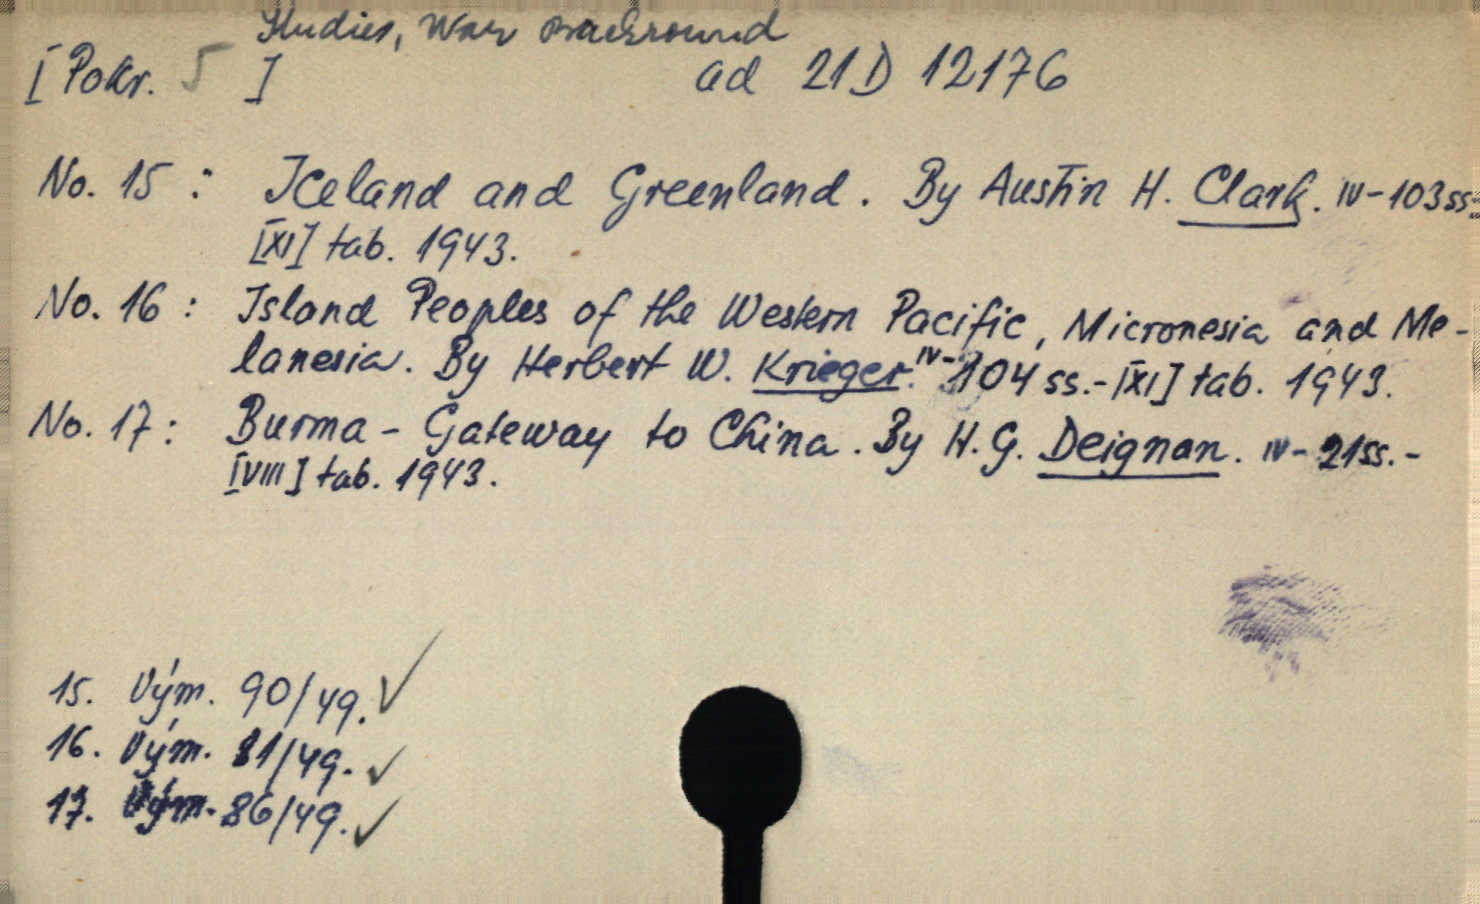 Studies, War Background
[Pokr. 5 ] ad 21 D 12176
No. 15 : Iceland and Greenland. By Austin H. Clark. IV-103 ss.-
[XI] tab. 1943.
No. 16 : Island Peoples of the Western Pacific, Micronesia and Me-
lanesia. By Herbert W. Krieger. IV-104 ss.-[XI] tab. 1943.
No. 17 : Burma - Gateway to China. By H. G. Deignan. IV-21 ss.-
[VIII] tab. 1943.
15. Vým. 90/49. ✓
16. Vým. 81/49. ✓
17. Vým. 86/49. ✓